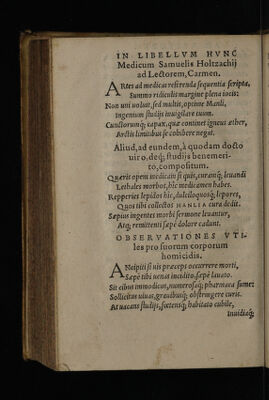 IN LIBELLVM HVNC
Medicum Samuelis Holtzachij
ad Lectorem, Carmen.
ARtes ad medicas referenda sequentia scripta,
Summo ridiculis margine plena iocis:
Non uni uoluit, sed multis, optime Manli,
Ingenium studijs inuigilare tuum.
Cunctorumq́; capax, quæ continet igneus æther,
Arctis limitibus se cohibere negat.
Aliud, ad eundem, à quodam docto
uiro, deq́; studijs benemeri-
to, compositum.
Quærit opem medicam si quis, curamq́; leuandi
Lethales morbos, hîc medicamen habet.
Repperies lepidos hîc, dulciloquosq́; lepores,
Quos tibi collectos MANLIA cura dedit.
Sæpius ingentes morbi sermone leuantur,
Atq; remittenti sæpe dolore cadunt.
OBSERVATIONES VTI-
les pro suorum corporum
homicidis.
ANcipiti si uis præceps occurrere morti,
Sæpe tibi uenas incidito, sæpe lauato.
Sit cibus immodicus, numerosaq́; pharmaca sumes
Sollicitus uiuas, grauibusq́; obstringere curis.
At uacans studijs, sœtensq́; habitato cubile,
Inuidiaq́;